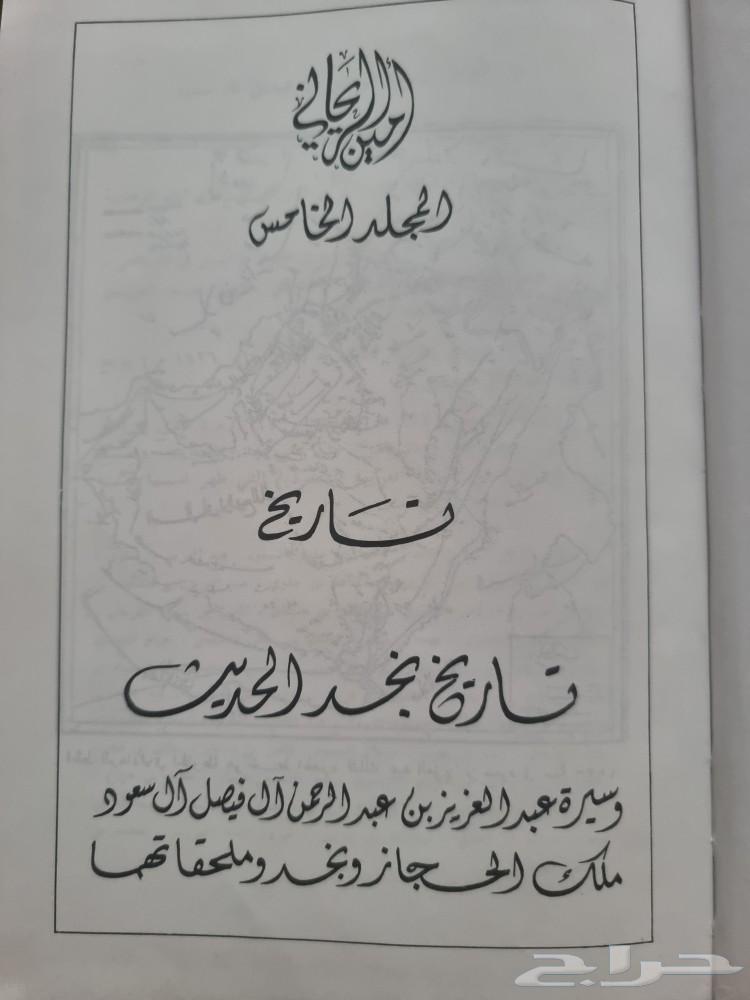 أمين الريحاني
المجلد الخامس
تاريخ
تاريخ نجد الحديث
وسيرة عبد العزيز بن عبد الرحمن آل فيصل آل سعود
ملك الحجاز ونجد وملحقاتهما
حراج